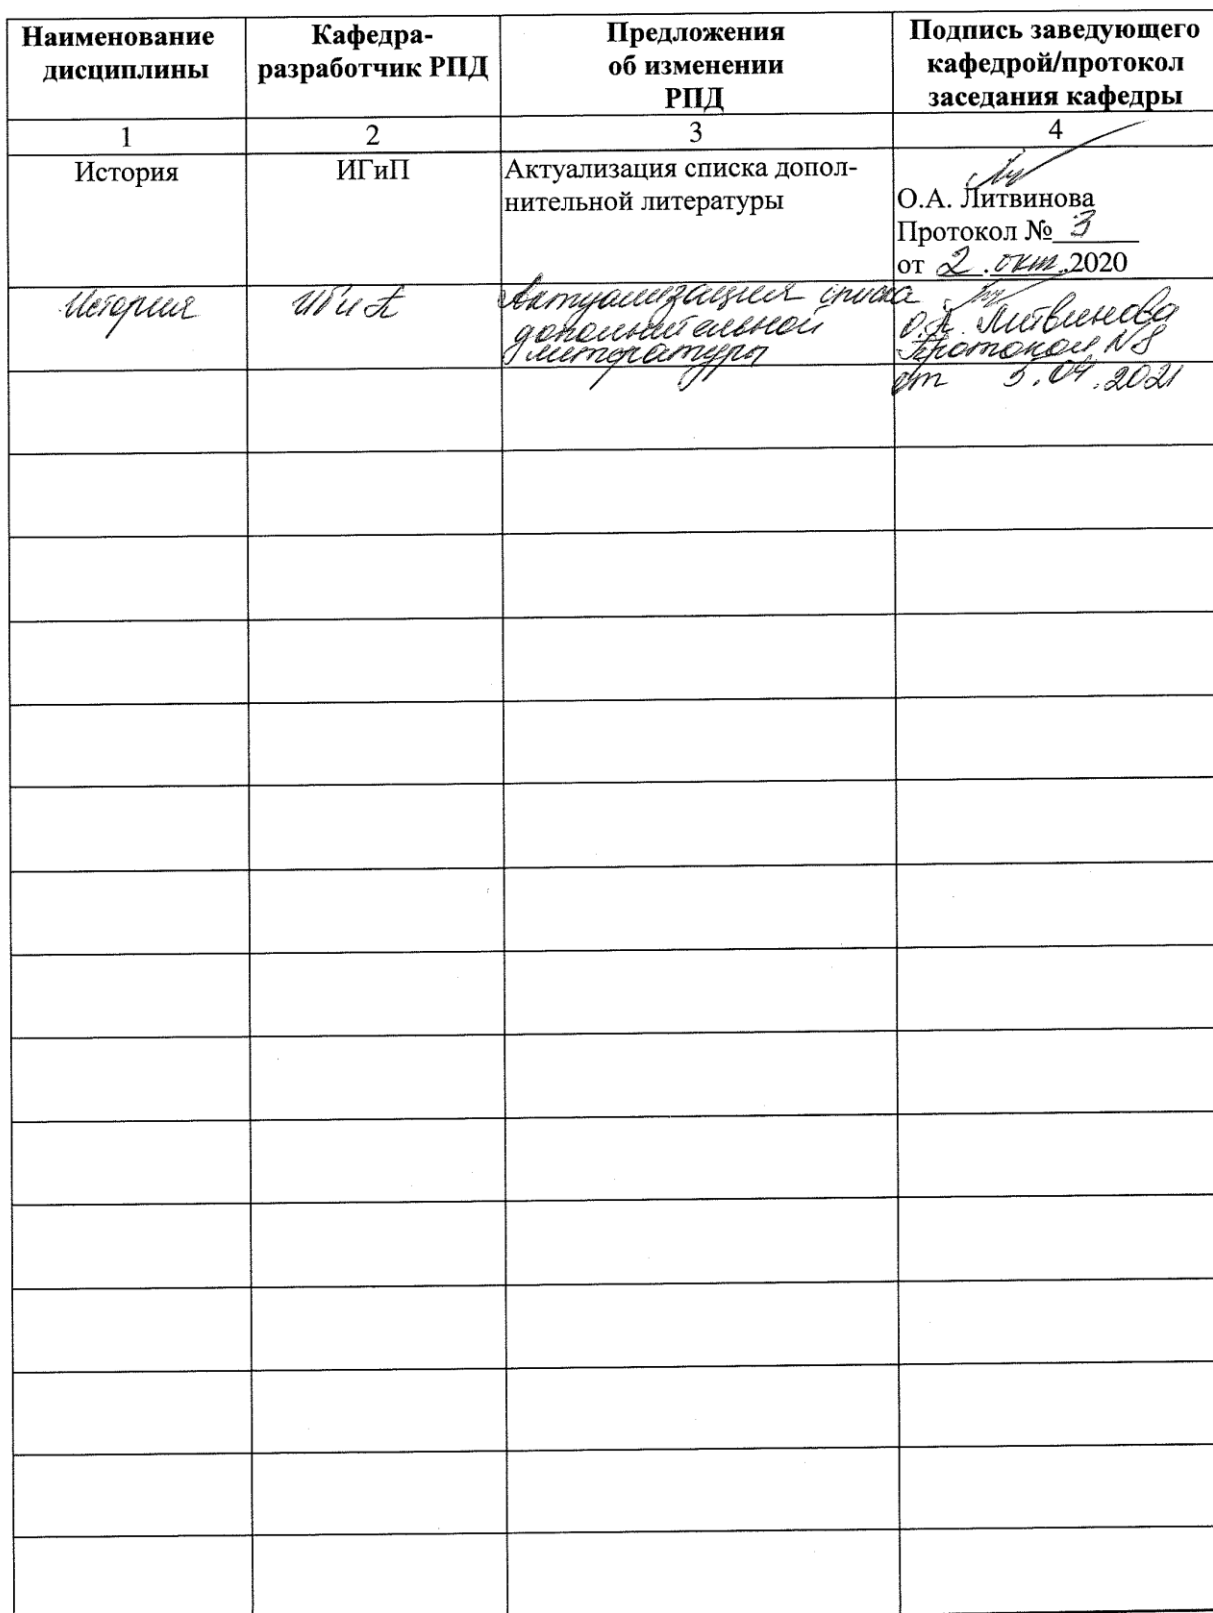 Наименование дисциплины
Кафедра-разработчик РПД
Предложения об изменении РПД
Подпись заведующего кафедрой/протокол заседания кафедры
1 2 3 4
История
ИГиП
Актуализация списка допол-
нительной литературы
О.А. Литвинова
Протокол № 3
от 2.окт.2020
История
Актуализация списка
дополнительной
литературы
О.А. Литвинова
Протокол №8
от 5.04.2021